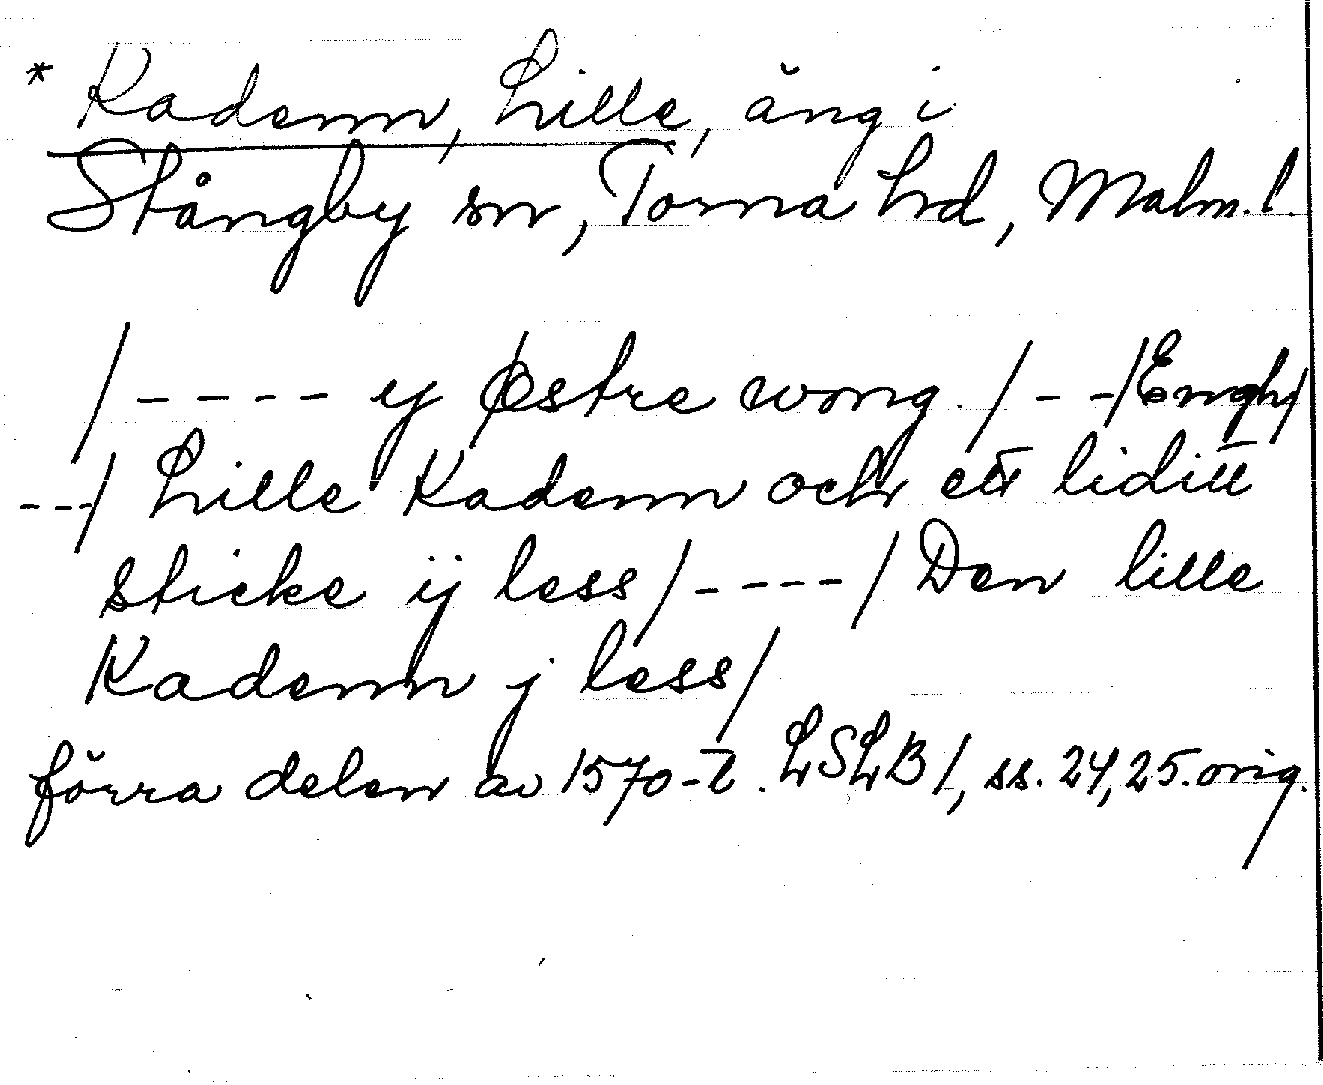 * Kadenn, Lille, äng i
Stångby sn, Torna hd, Malm. l.
/---- ij Østre wong / --/Engh/
--/ Lille Kadenn och ett liditt
sticke ij less/----/Den lille
Kadenn j less/
förra delen av 1570-t. LSLB 1, ss. 24, 25. orig.